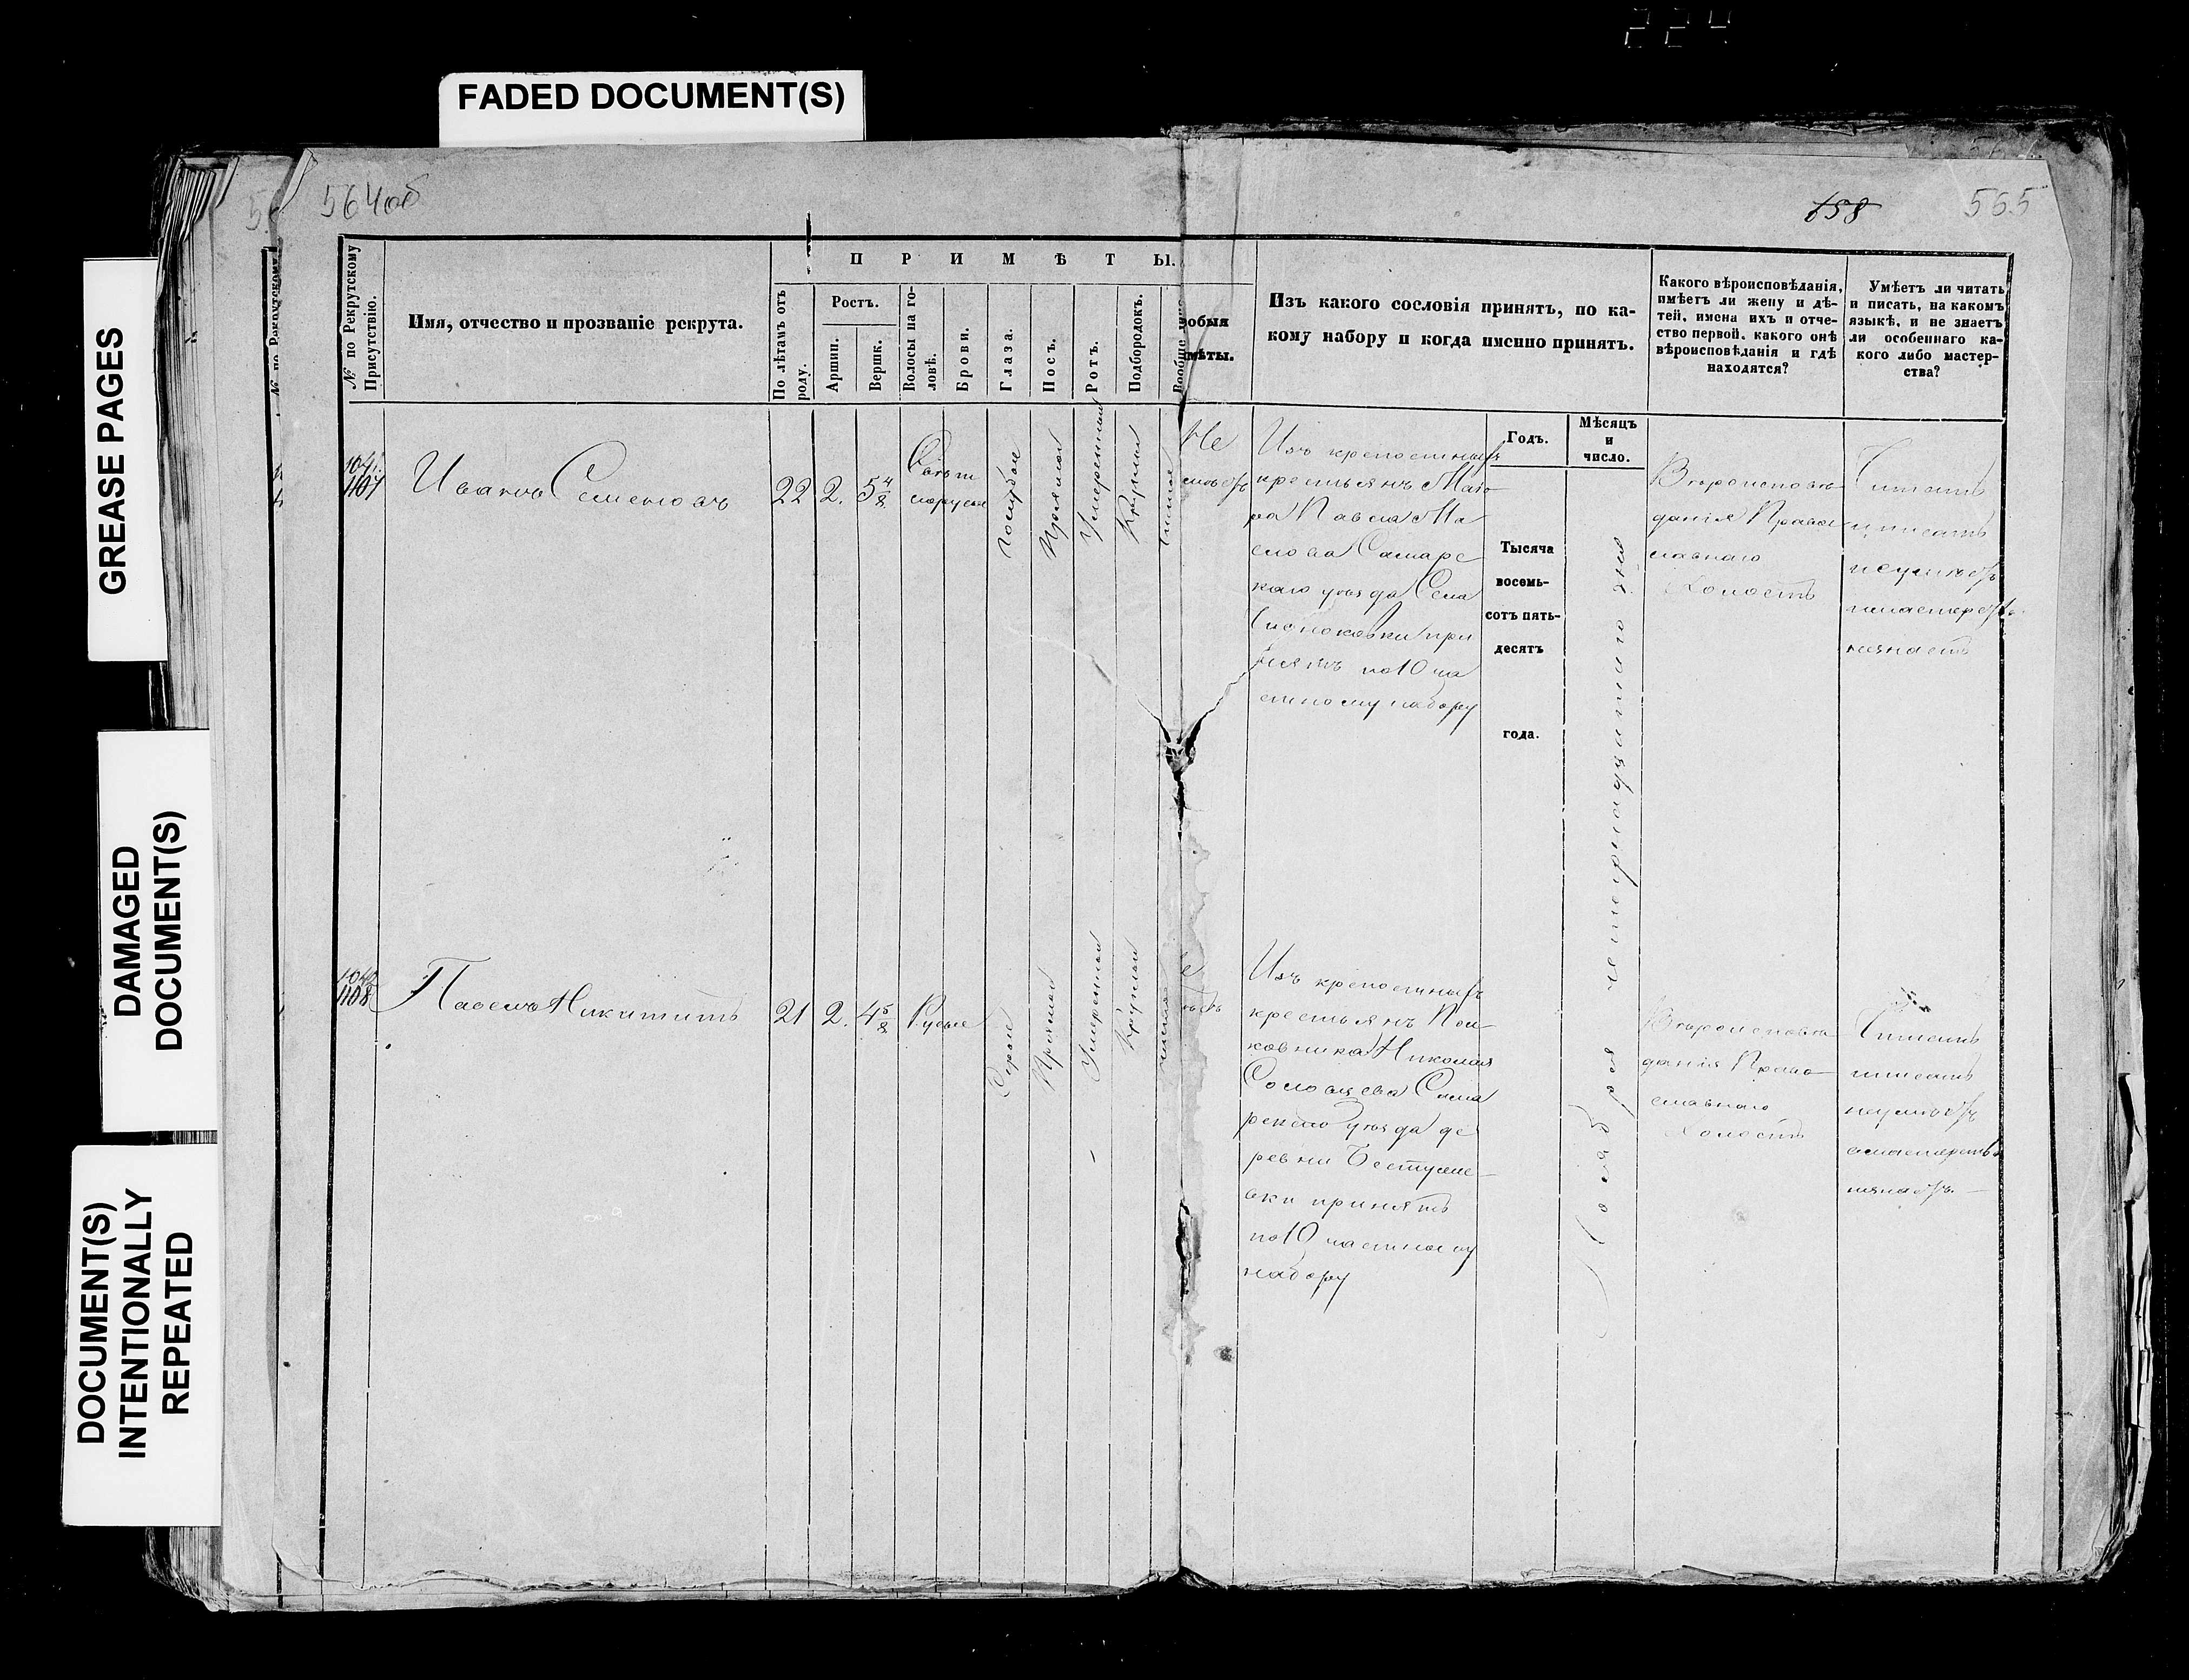 224
FADED DOCUMENT(S)
GREASE PAGES
DAMAGED
DOCUMENT(S)
DOCUMENT(S)
INTENTIONALLY
REPEATED
564об
658
565
№ по Рекрутскому
Присутствію.
Имя, отчество и прозваніе рекрута.
ПРИМѢТЫ.
По лѣтамъ отъ
роду.
Ростъ.
Аршин.
Вершк.
Волосы на го-
ловѣ.
Брови.
Глаза.
Носъ.
Ротъ.
Подбородокъ.
Вообще
собыя
мѣты.
Изъ какого сословія принятъ, по ка-
кому набору и когда именно принятъ.
Какого вѣроисповѣданія,
имѣетъ ли жену и дѣ-
тей, имена ихъ и отче-
ство первой, какого онѣ
вѣроисповѣданія и гдѣ
находятся?
Умѣетъ ли читать
и писать, на какомъ
языкѣ, и не знаетъ
ли особеннаго ка-
кого либо мастер-
ства?
Годъ.
Мѣсяцъ
и
число.
Тысяча
восемь-
сотъ пять-
десятъ
года.
1107
Иванъ Семеновъ
22
2.
5 4/8
Свѣт
лорусые
Голубые
Прямой
Умеренный
Круглый
Не
имѣетъ
Изъ крепостныхъ
крестьянъ Маіо
ра Павла Ма
слова Самарс
каго уѣзда Села
при
нятъ по 10 ча
стному набору
четырнадцатаго дня
Ноября
Вѣроисповѣ
данія Право
славнаго
Холостъ
Читать
и писать
неумѣетъ
имастерствъ
незнаетъ
1108
Павелъ Никитинъ
21
2.
4 5/8
Русые
Серые
Прямой
Умеренный
Круглый
Изъ крепостныхъ
крестьянъ Пол
ковника Николая
Соловцева Сама
рскаго уѣзда де
ревни Бестуже
вки принятъ
по 10 частному
набору
Вѣроисповѣ
данія Право
славнаго
Холостъ
Читать
иписать
неумѣетъ
имастерствъ
незнаетъ.